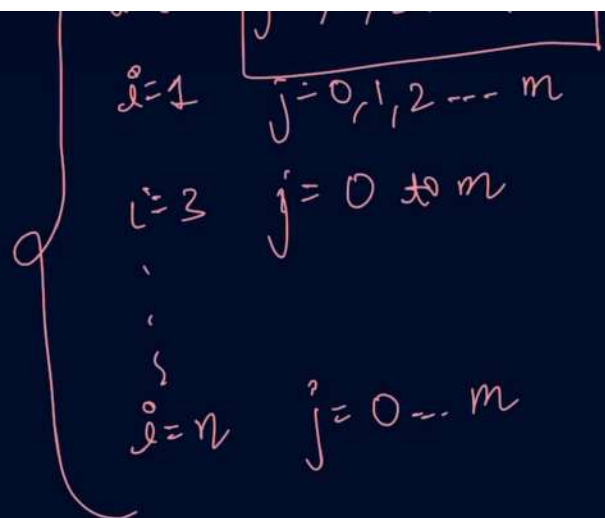 i=1 j=0,1,2---- m
i=3 j= 0 to m
i=n j= 0--- m